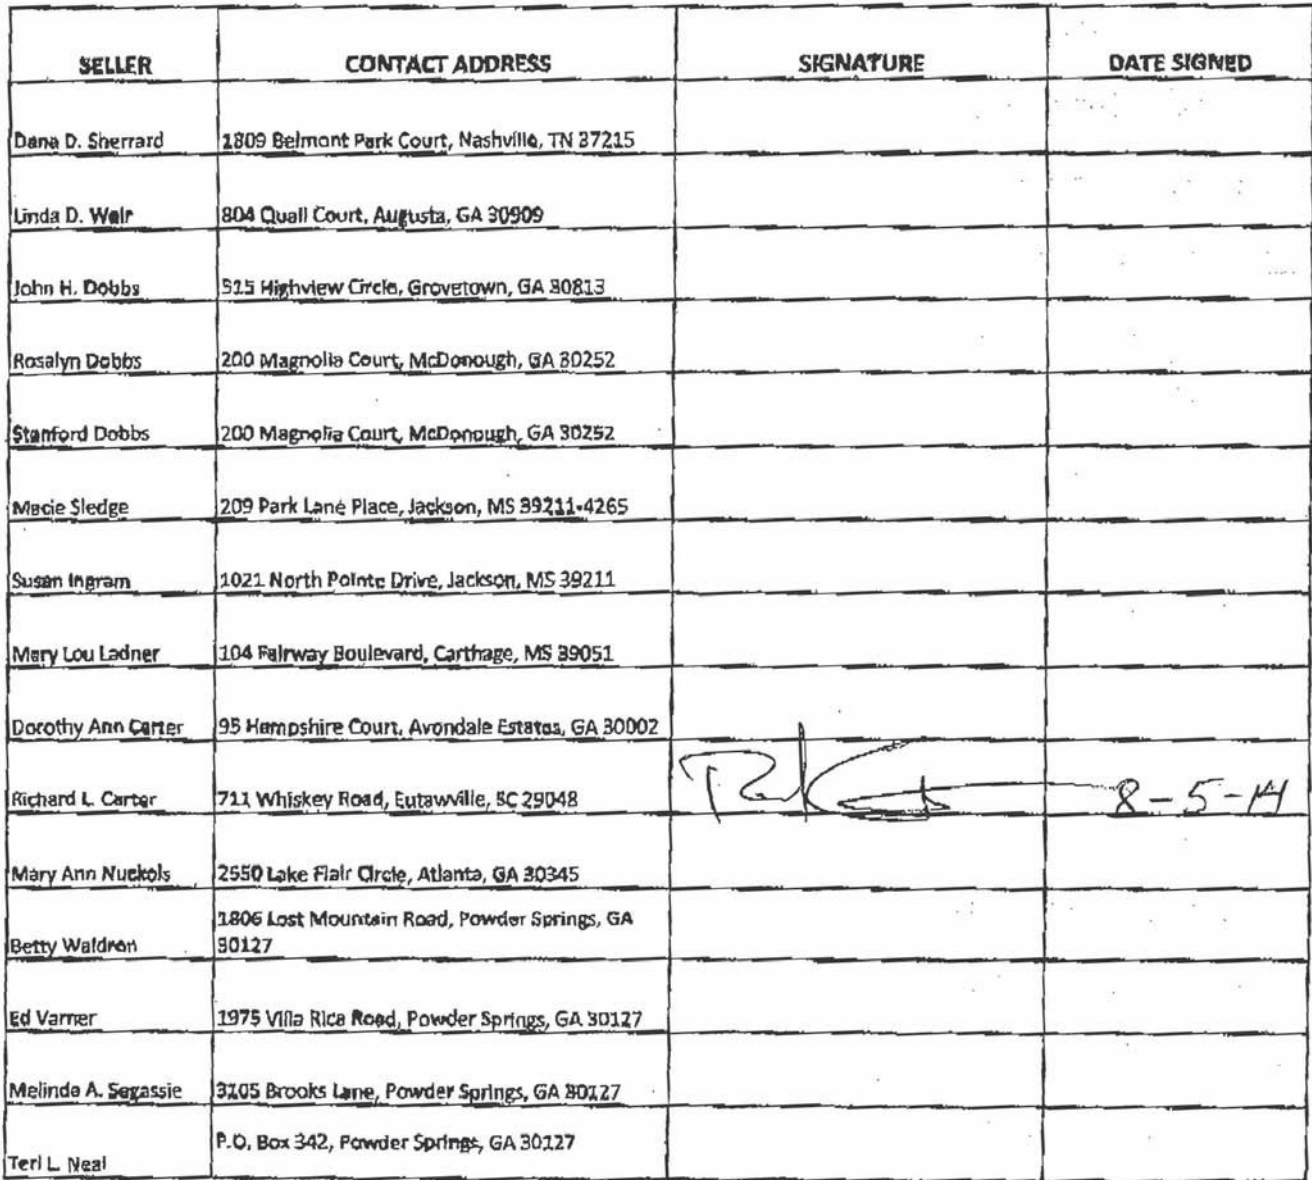 SELLER CONTACT ADDRESS SIGNATURE DATE SIGNED
Dana D. Sherrard 1809 Belmont Park Court, Nashville, TN 37215
Linda D. Weir 804 Quail Court, Augusta, GA 30909
John H. Dobbs 515 Highview Circle, Grovetown, GA 30813
Rosalyn Dobbs 200 Magnolia Court, McDonough, GA 30252
Stanford Dobbs 200 Magnolia Court, McDonough, GA 30252
Macie Sledge 209 Park Lane Place, Jackson, MS 39211-4265
Susan Ingram 1021 North Pointe Drive, Jackson, MS 39211
Mary Lou Ladner 104 Fairway Boulevard, Carthage, MS 39051
Dorothy Ann Carter 95 Hampshire Court, Avondale Estates, GA 30002
Richard L. Carter 711 Whiskey Road, Eutawville, SC 29048 8-5-14
Mary Ann Nuckols 2550 Lake Flair Circle, Atlanta, GA 30345
1806 Lost Mountain Road, Powder Springs, GA
Betty Waldron 30127
Ed Varner 1975 Villa Rica Road, Powder Springs, GA 30127
Melinda A. Segassie 3105 Brooks Lane, Powder Springs, GA 30127
P.O. Box 342, Powder Springs, GA 30127
Teri L. Neal